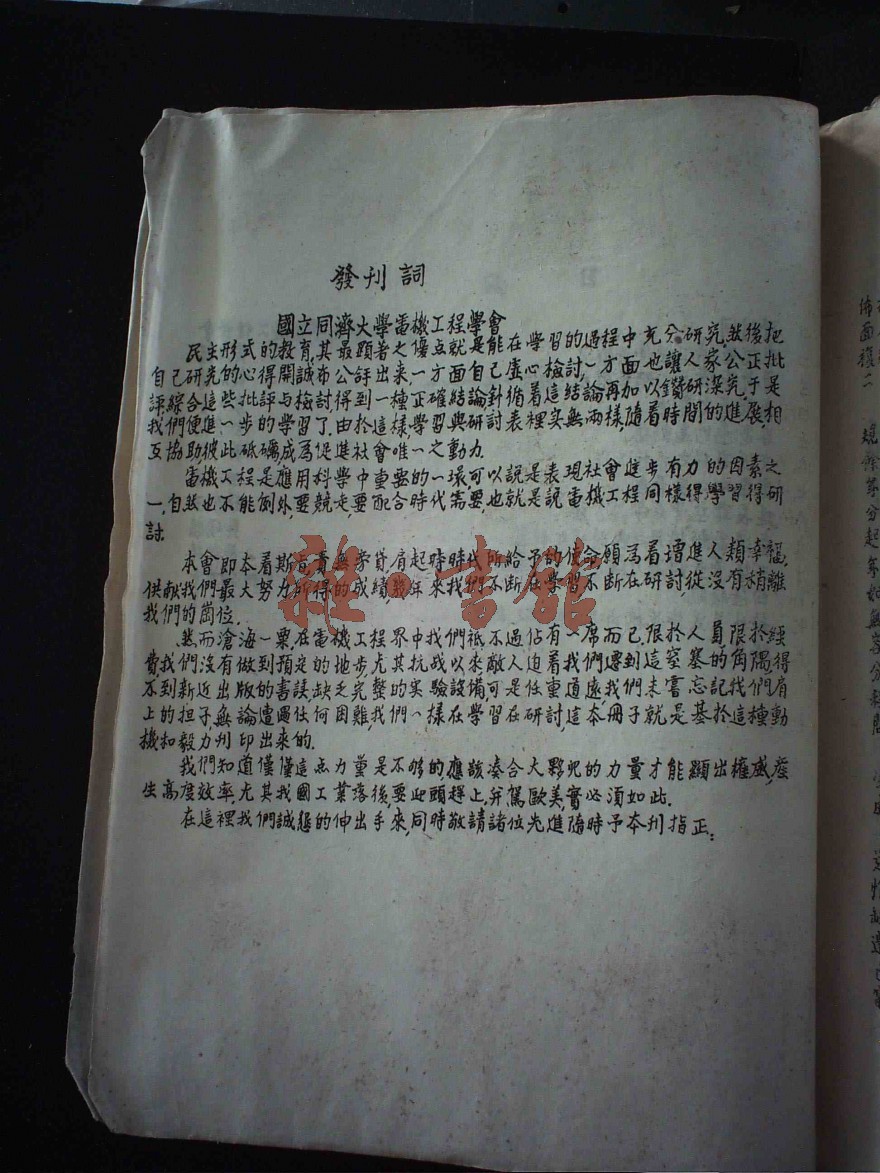 發刊詞
國立同濟大學電機工程學會
民主形式的教育,其最顯著之優点就是能在學習的過程中充分研究,然後把
自己研究的心得開誠布公評出來,一方面自己虛心檢討,一方面也讓人家公正批
評,綜合這些批評与檢討,得到一種正確結論,針循着這結論再加以鑽研深究,于是
我們便進一步的學習了.由於這樣,學習與研討表裡实無兩樣,隨着時間的進展,相
互協助彼此砥礪成為促進社會唯一之動力.
電機工程是應用科學中重要的一環可以說是表現社會進步有力的因素之
一,自然也不能例外,要競走,要配合時代需要,也就是說電機工程同樣得學習得研
討.
本會即本着斯旨責無旁貸,肩起時代所給予的使命願為着增進人類幸福,
供献我們最大努力所得的成績,幾年來我們不断在學習不断在研討從没有稍離
我們的崗位.
然而滄海一粟,在電機工程界中我們祇不過佔有一席而已,限於人員,限於經
費,我們没有做到預定的地步,尤其抗战以來敵人迫着我們遷到這窒塞的角隅得
不到新近出版的書誌,缺乏完整的实驗設備,可是任重道遠,我們未嘗忘記我們肩
上的担子,無論遭遇任何困難,我們一樣在學習在研討,這本冊子就是基於這種動
機和毅力刊印出來的.
我們知道僅僅這点力量是不够的,應該湊合大夥兒的力量才能顯出權威,産
生高度效率,尤其我國工業落後,要迎頭趕上,并駕歐美,實必須如此.
在這裡我們誠懇的伸出手來,同時敬請諸位先進隨時予本刊指正:
雜·書館
佈面積二